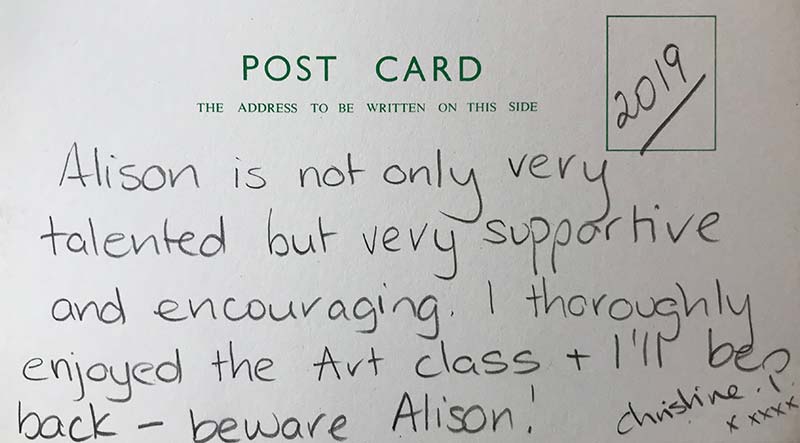 POST CARD
THE ADDRESS TO BE WRITTEN ON THIS SIDE
2019
Alison is not only very
talented but very supportive
and encouraging. I thoroughly
enjoyed the Art class + I'll be
back – beware Alison!
christine.!
x xxxx